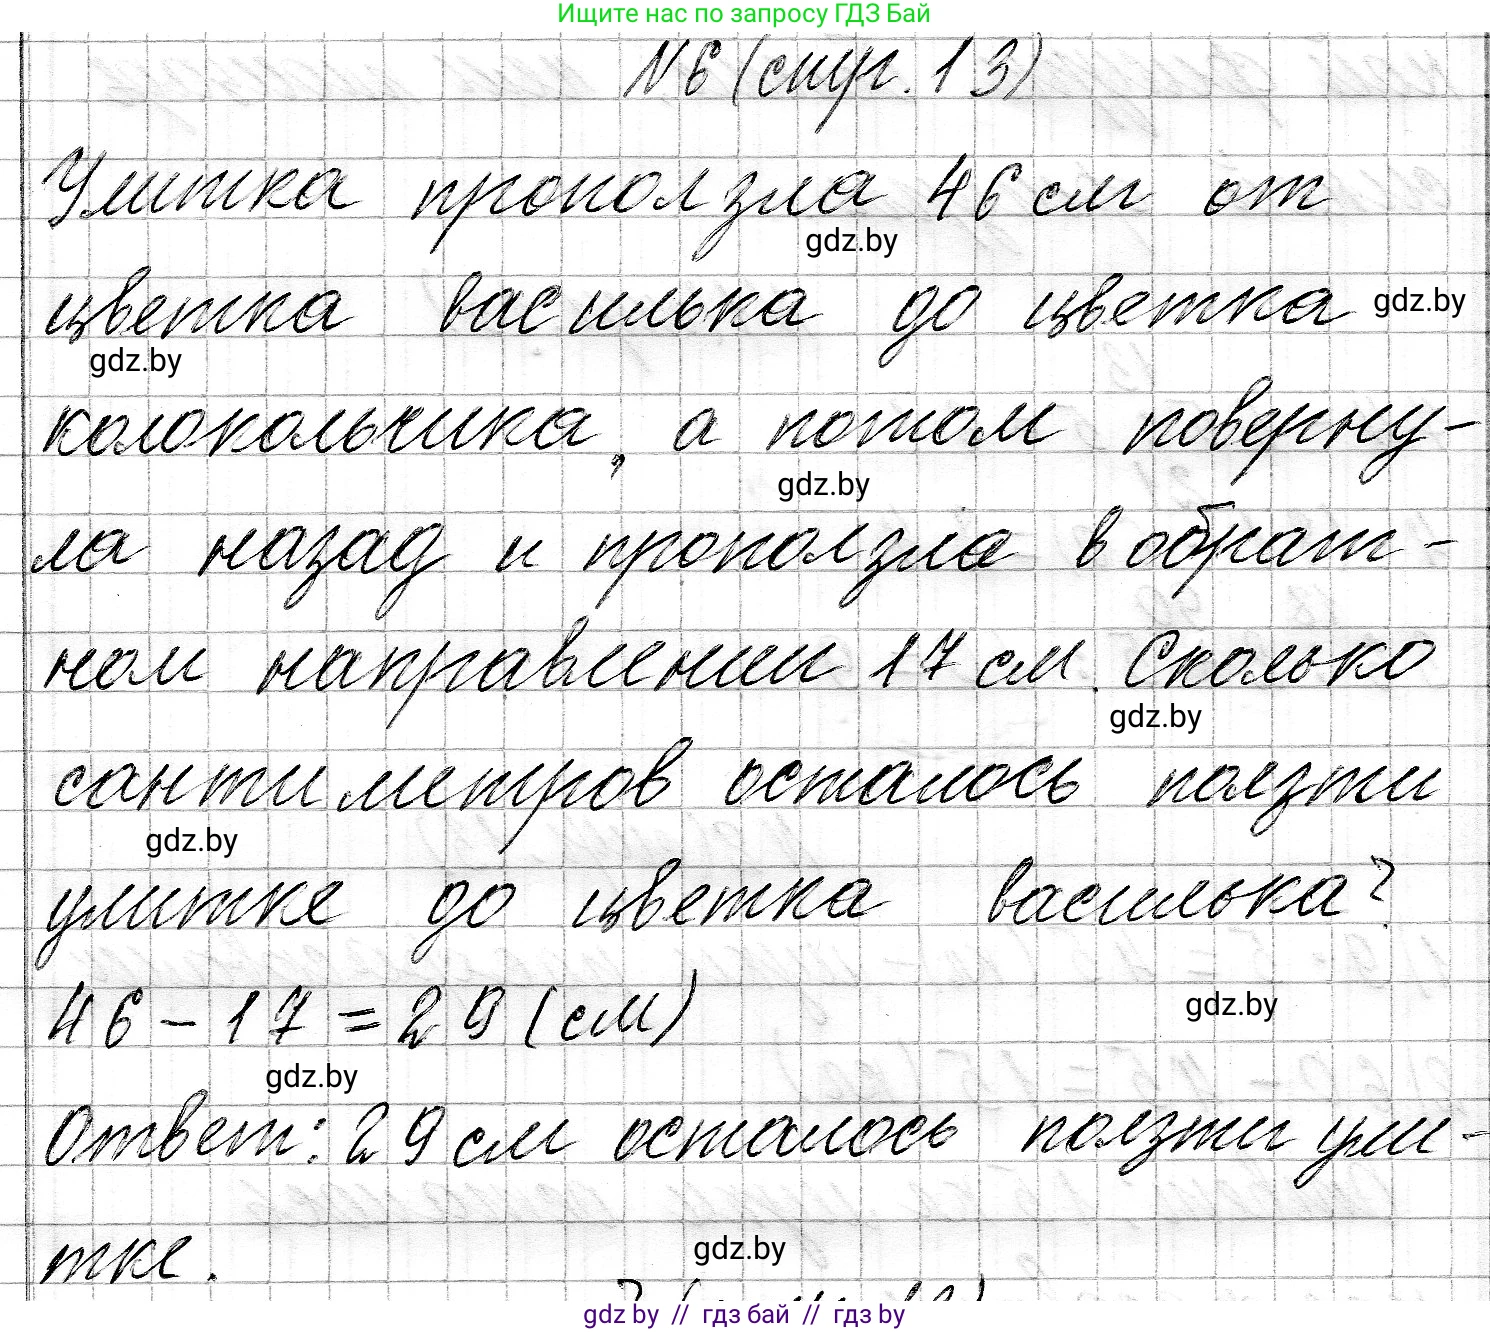 Ищите нас по запросу ГДЗ Бай
№6 (стр. 13)
Улитка проползла 46 см от
gdz.by
цветка василька до цветка gdz.by
gdz.by
колокольчика, а потом поверну-
gdz.by
ла назад и проползла в обрат-
ном направлении 17 см. Сколько
gdz.by
сантиметров осталось ползти
gdz.by
улитке до цветка василька?
46 - 17 = 29 (см) gdz.by
gdz.by
Ответ: 29 см осталось ползти ули-
тке. gdz.by
gdz.by // гдз бай // гдз by